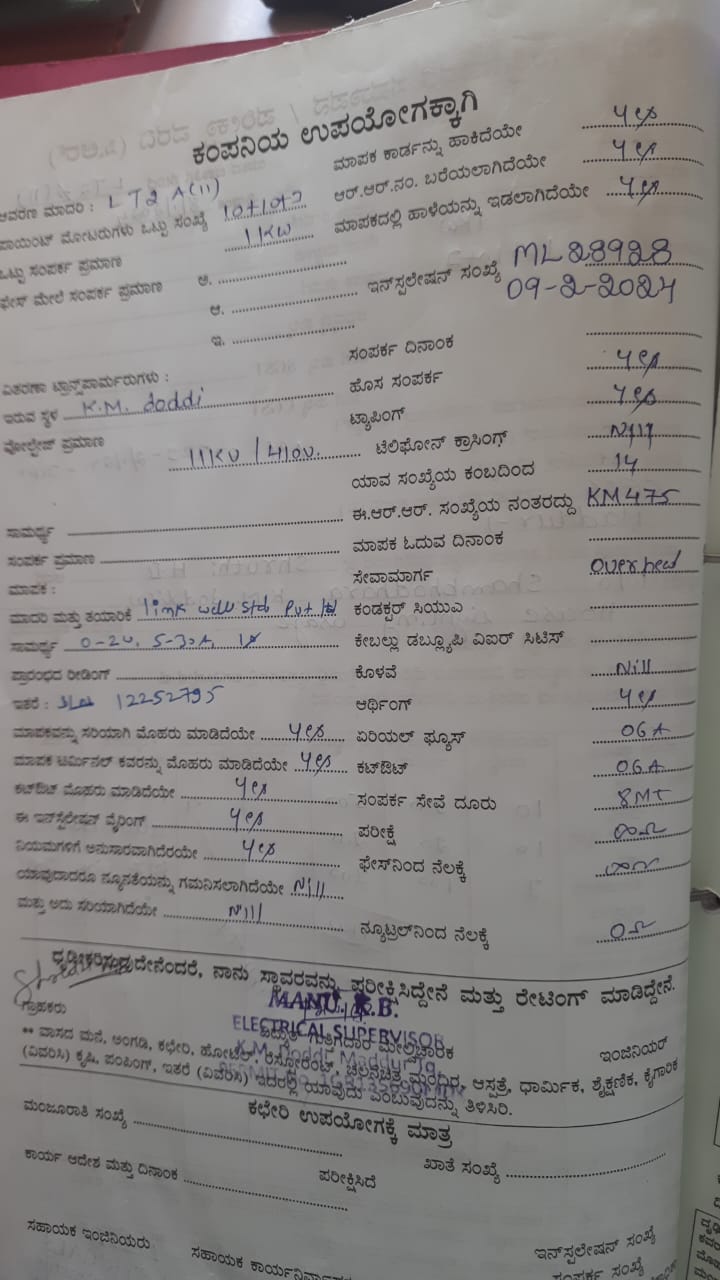 ಕಂಪನಿಯ ಉಪಯೋಗಕ್ಕಾಗಿ
ಆವರಣ ಮಾದರಿ : LT2 A(11)
ಪಾಯಿಂಟ್ ಮೋಟರುಗಳು ಒಟ್ಟು ಸಂಖ್ಯೆ
ಒಟ್ಟು ಸಂಪರ್ಕ ಪ್ರಮಾಣ 1KW
ಫೇಸ್ ಮೇಲೆ ಸಂಪರ್ಕ ಪ್ರಮಾಣ ಅ.
ಆ.
ಇ.
ಮಾಪಕ ಕಾರ್ಡನ್ನು ಹಾಕಿದೆಯೇ yes
ಆರ್.ಆರ್.ನಂ. ಬರೆಯಲಾಗಿದೆಯೇ yes
ಮಾಪಕದಲ್ಲಿ ಹಾಳೆಯನ್ನು ಇಡಲಾಗಿದೆಯೇ yes
ಇನ್‌ಸ್ಪಲೇಷನ್ ಸಂಖ್ಯೆ ML28928
09-2-2024
ವಿತರಣಾ ಟ್ರಾನ್ಸ್‌ಪಾರ್ಮರುಗಳು :
ಇರುವ ಸ್ಥಳ K.M. doddi
ವೋಲ್ಟೇಜ್ ಪ್ರಮಾಣ 11KV / 410V.
ಸಾಮರ್ಥ್ಯ
ಸಂಪರ್ಕ ಪ್ರಮಾಣ
ಮಾಪಕ :
ಮಾದರಿ ಮತ್ತು ತಯಾರಿಕೆ link well Std Pvt ltd
ಸಾಮರ್ಥ್ಯ 5-30A,
ಪ್ರಾರಂಭದ ರೀಡಿಂಗ್
ಇತರೆ : 12252795
ಮಾಪಕವನ್ನು ಸರಿಯಾಗಿ ಮೊಹರು ಮಾಡಿದೆಯೇ yes
ಮಾಪಕ ಟರ್ಮಿನಲ್ ಕವರನ್ನು ಮೊಹರು ಮಾಡಿದೆಯೇ yes
ಕಟ್‌ಔಟ್ ಮೊಹರು ಮಾಡಿದೆಯೇ yes
ಈ ಇನ್‌ಸ್ಪಲೇಷನ್ ವೈರಿಂಗ್ yes
ನಿಯಮಗಳಿಗೆ ಅನುಸಾರವಾಗಿದೆರಯೇ yes
ಯಾವುದಾದರೂ ನ್ಯೂನತೆಯನ್ನು ಗಮನಿಸಲಾಗಿದೆಯೇ Nill
ಮತ್ತು ಅದು ಸರಿಯಾಗಿದೆಯೇ Nill
ಸಂಪರ್ಕ ದಿನಾಂಕ
ಹೊಸ ಸಂಪರ್ಕ yes
ಟ್ಯಾಪಿಂಗ್ yes
ಟೆಲಿಫೋನ್ ಕ್ರಾಸಿಂಗ್ Nill
ಯಾವ ಸಂಖ್ಯೆಯ ಕಂಬದಿಂದ 14
ಈ.ಆರ್.ಆರ್. ಸಂಖ್ಯೆಯ ನಂತರದ್ದು KM475
ಮಾಪಕ ಓದುವ ದಿನಾಂಕ
ಸೇವಾಮಾರ್ಗ Overhed
ಕಂಡಕ್ಟರ್ ಸಿಯುವಿ
ಕೇಬಲ್ಲು ಡಬ್ಲ್ಯೂಪಿ ವಿಐರ್ ಸಿಟಿಸ್
ಕೊಳವೆ Nill
ಆರ್ಥಿಂಗ್ yes
ಏರಿಯಲ್ ಫ್ಯೂಸ್ OGA
ಕಟ್‌ಔಟ್ OGA
ಸಂಪರ್ಕ ಸೇವೆ ದೂರು 8MT
ಪರೀಕ್ಷೆ ∞Ω
ಫೇಸ್‌ನಿಂದ ನೆಲಕ್ಕೆ ∞Ω
ನ್ಯೂಟ್ರಲ್‌ನಿಂದ ನೆಲಕ್ಕೆ 0Ω
ಧೃಡೀಕರಿಸುವುದೇನೆಂದರೆ, ನಾನು ಸ್ಥಾವರವನ್ನು ಪರೀಕ್ಷಿಸಿದ್ದೇನೆ ಮತ್ತು ರೇಟಿಂಗ್ ಮಾಡಿದ್ದೇನೆ.
ಗ್ರಾಹಕರು
MANU K.B.
ELECTRICAL SUPERVISOR
ವಿದ್ಯುತ್ ಗುತ್ತಿಗೆದಾರ ಮೇಲ್ವಿಚಾರಕ
K.M. Doddi, Maddur Tq.
ಇಂಜಿನಿಯರ್
** ವಾಸದ ಮನೆ, ಅಂಗಡಿ, ಕಛೇರಿ, ಹೋಟೆಲ್, ರೆಸ್ಟೋರೆಂಟ್, ಚಲನಚಿತ್ರ ಮಂದಿರ, ಆಸ್ಪತ್ರೆ, ಧಾರ್ಮಿಕ, ಶೈಕ್ಷಣಿಕ, ಕೈಗಾರಿಕ
(ವಿವರಿಸಿ) ಕೃಷಿ, ಪಂಪಿಂಗ್, ಇತರೆ (ವಿವರಿಸಿ) ಇದರಲ್ಲಿ ಯಾವುದು ಎಂಬುವುದನ್ನು ತಿಳಿಸಿರಿ.
ಕಛೇರಿ ಉಪಯೋಗಕ್ಕೆ ಮಾತ್ರ
ಮಂಜೂರಾತಿ ಸಂಖ್ಯೆ
ಖಾತೆ ಸಂಖ್ಯೆ
ಕಾರ್ಯ ಆದೇಶ ಮತ್ತು ದಿನಾಂಕ
ಪರೀಕ್ಷಿಸಿದೆ
ಸಹಾಯಕ ಇಂಜಿನಿಯರು
ಇನ್‌ಸ್ಪಲೇಷನ್ ಸಂಖ್ಯೆ